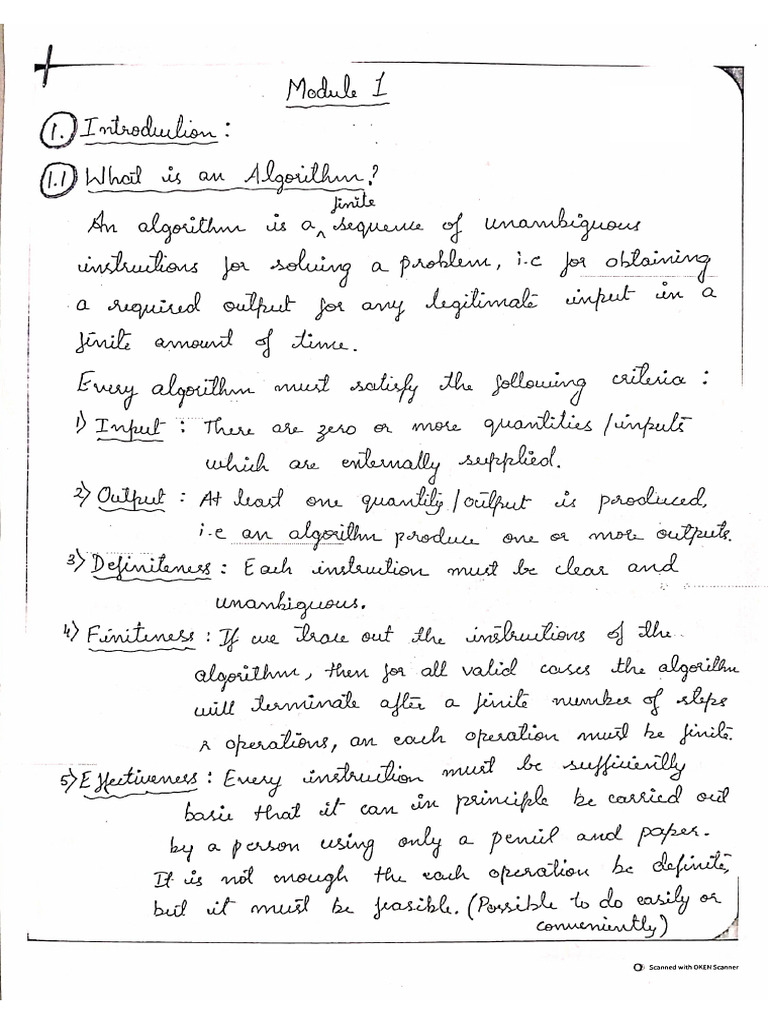 Module 1
1. Introduction:
1.1 What is an Algorithm?
An algorithm is a finite sequence of unambiguous
instructions for solving a problem, i.e for obtaining
a required output for any legitimate input in a
finite amount of time.
Every algorithm must satisfy the following criteria:
1) Input : There are zero or more quantities/inputs
which are externally supplied.
2) Output : At least one quantity/output is produced,
i.e an algorithm produce one or more outputs.
3) Definiteness : Each instruction must be clear and
unambiguous.
4) Finiteness : If we trace out the instructions of the
algorithm, then for all valid cases the algorithm
will terminate after a finite number of steps
operations, an each operation must be finite.
5) Effectiveness : Every instruction must be sufficiently
basic that it can in principle be carried out
by a person using only a pencil and paper.
It is not enough the each operation be definite,
but it must be feasible. (Possible to do easily or
conveniently)
Scanned with OKEN Scanner